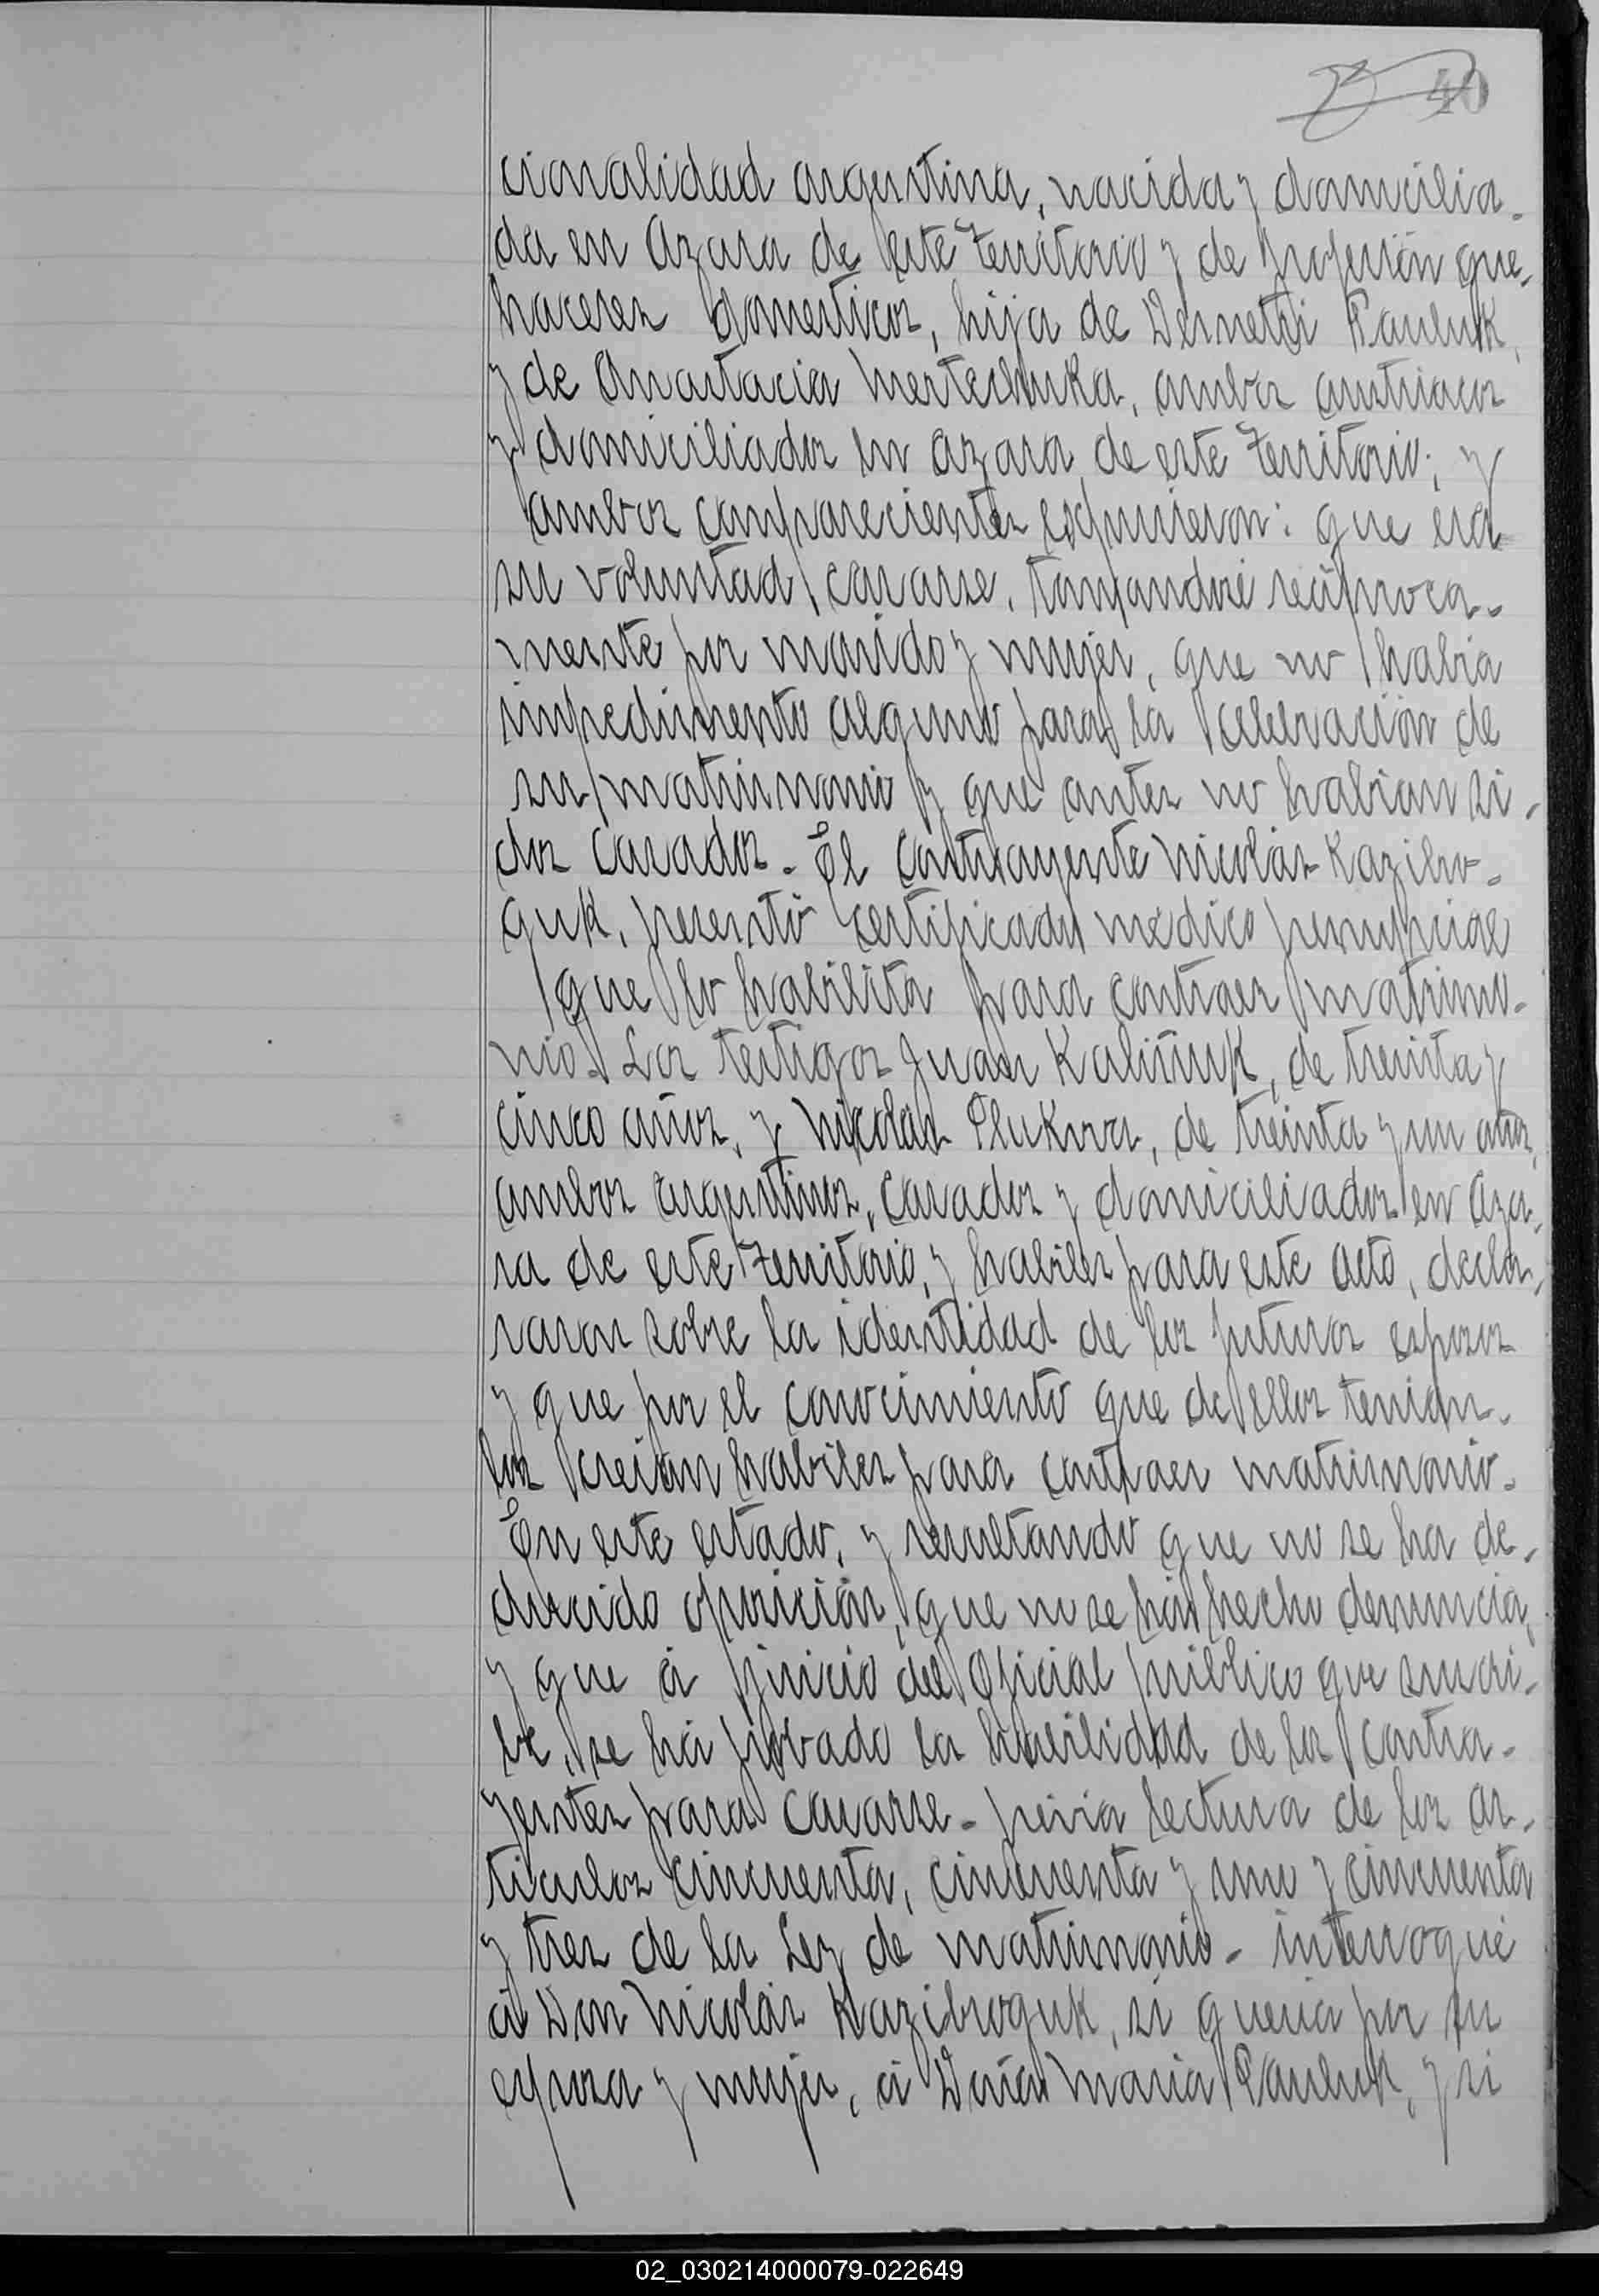 40
cionalidad argentina, nacida y domicilia-
da en Azara de este Territorio y de profesión que-
haceres domesticos, hija de Demetri Pauluk,
y de Anastacia Mertechuka, ambos austriacos
y domiciliados en Azara, de este Territorio; y
ambos comparecientes expusieron: que era
su voluntad, casarse, tomandose recíproca-
mente por marido y mujer, que no habia
impedimento alguno para la celebración de
su matrimonio y que antes no habian si-
dos casados. El contrayente Nicolás Kazibro-
guk, presentó certificado médico prenupcial
que lo habilita para contraer matrimo-
nio. Los testigos Juan Kaliñuk, de treinta y
cinco años, y Nicolas Plukova, de treinta y un años,
ambos argentinos, casados y domiciliados en Aza-
ra de este Territorio, y habiles para este acto, decla-
raron sobre la identidad de los futuros esposos
y que por el conocimiento que de ellos tenian-
los creian habiles para contraer matrimonio.
En este estado, y resultando que no se ha de-
ducido oposición, que no se há hecho denuncia,
y que á juicio del Oficial público que suscri-
be, se há probado la habilidad de los contra-
yentes para casarse - previa lectura de los ar-
ticulos cincuenta, cincuenta y uno y cincuenta
y tres de la Ley de matrimonio - interrogué
á Don Nicolás Kazibroguk, si queria por su
esposa y mujer, á Doña Maria Pauluk, y si
02_030214000079-022649